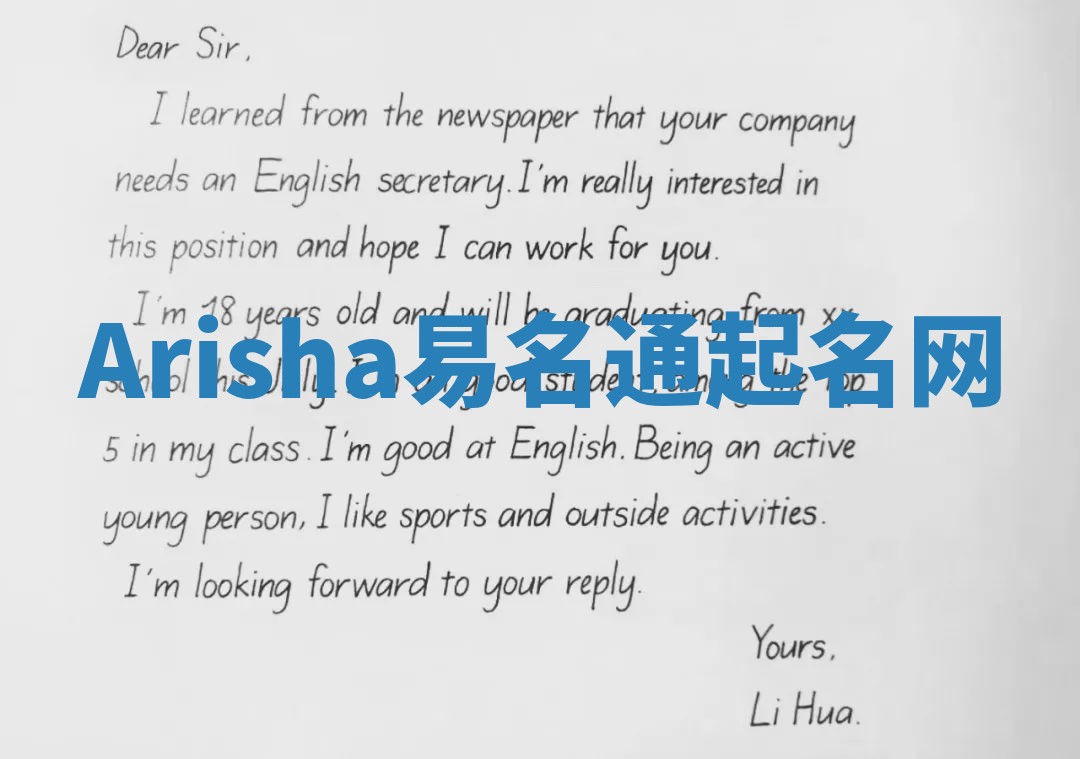 Dear Sir,
I learned from the newspaper that your company
needs an English secretary. I'm really interested in
this position and hope I can work for you.
I'm 18 years old and will be graduating from xx
Arisha易名通起名网
school this July. I'm a good student, among the top
5 in my class. I'm good at English. Being an active
young person, I like sports and outside activities.
I'm looking forward to your reply.
Yours,
Li Hua.